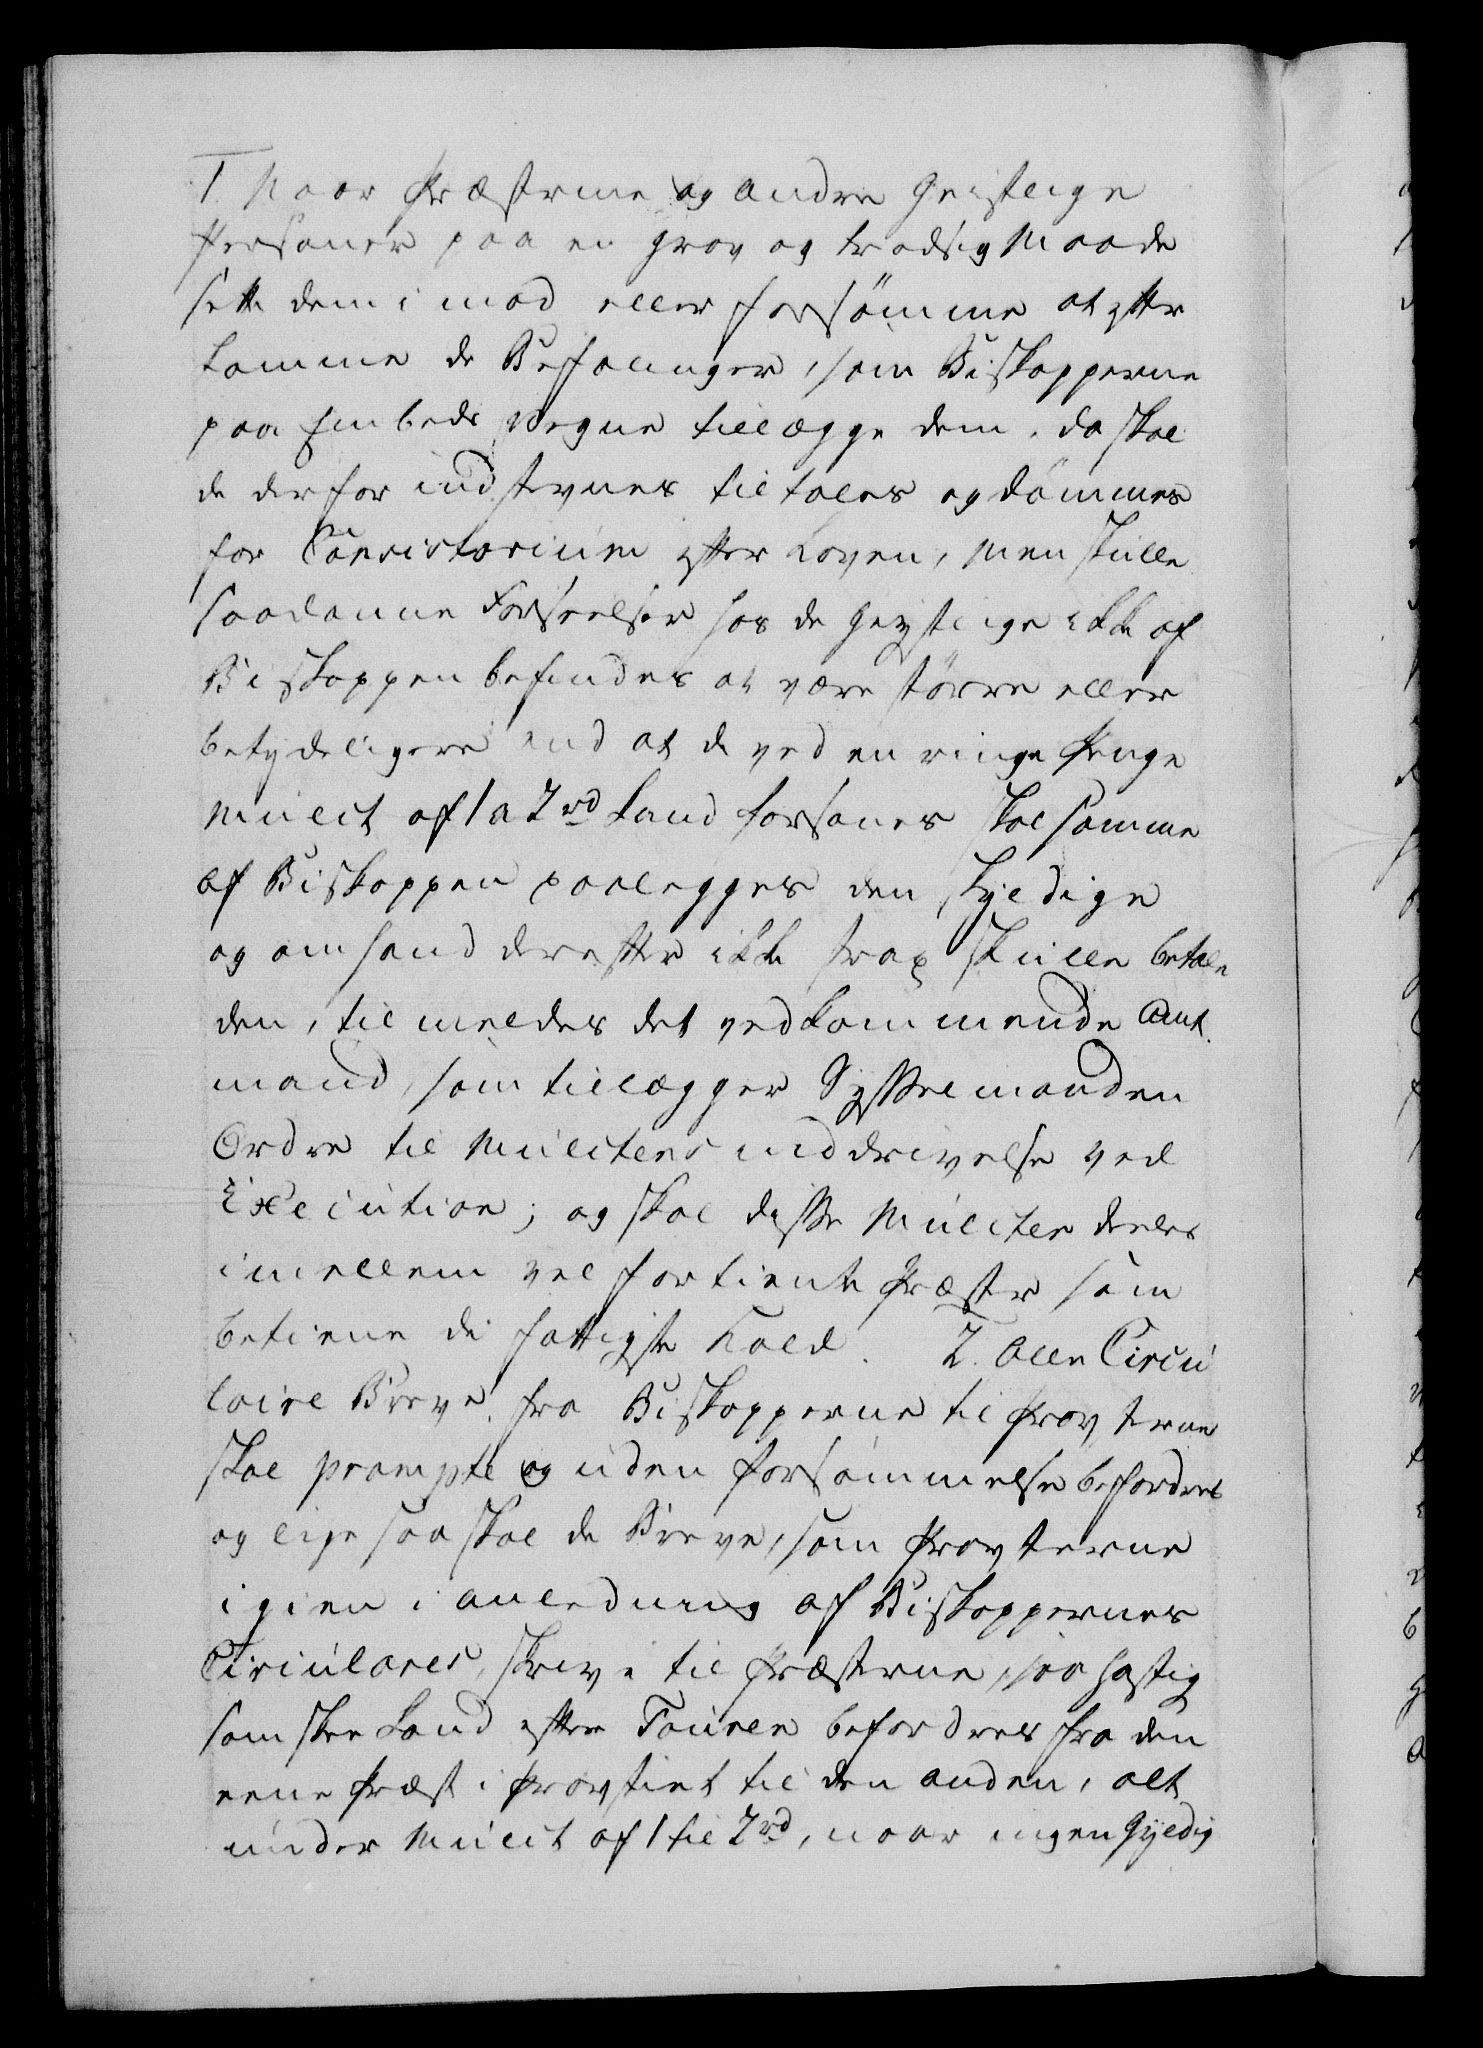 1. Naar Præsterne og andre Geistlige
Personer paa en grov og trodsig Maade
sette dem i mod eller forsömme at efter
komme de Befalinger, som Biskopperne
paa Embeds Vegne tillægge dem, da skal
de derfor indstevnes tiltales og dömmes
for Consistorium efter Loven, men skulle
saadanne Forseelser hos de Geystlige ikke af
Biskoppen befindes at være større eller
betydeligere end at de ved en ringe Penge
Mulct af 1 a 2 rd kand forsones skal samme
af Biskoppen paalegges den skyldige
og om hand derefter ikke strax skulle betale
den, tilmeldes det vedkommende Amt
mand, som tillægger Sysselmanden
Ordre til Mulctens inddrivelse ved
Execution; og skal disse Mulcter deeles
imellem vel fortiente Præster som
betiene de fattigste Kald. 2. Alle Circu
laire Breve fra Biskopperne til Provsterne
skal prompte og uden forsømmelse befordres
og lige saa skal de Breve, som Provsterne
igien i anledning af Biskoppernes
Circulares, skrive til Præsterne, saa hastig
som skee kand efter Touren befordres fra den
eene Præst i Provstiet til den anden, alt
under Mulct af 1 til 2 rd, naar ingen Gyldig